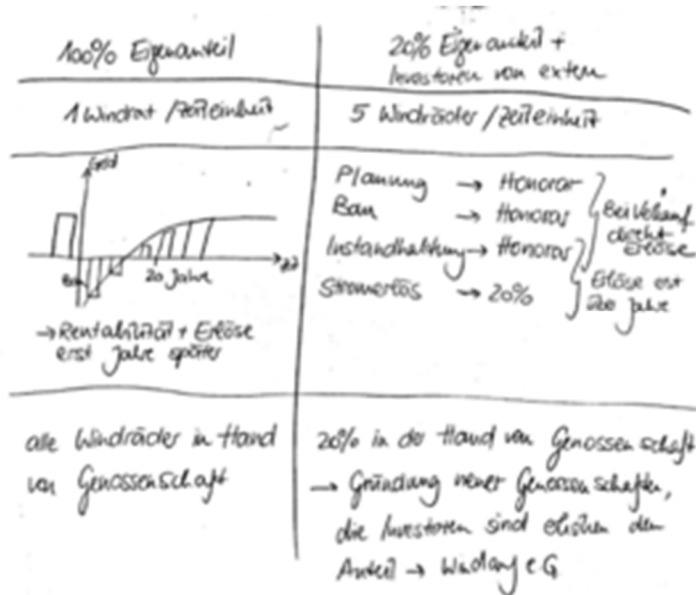 100% Eigenanteil
20% Eigenanteil +
Investoren von extern
1 Windrat /Zeiteinheit
5 Windräder /Zeiteinheit
Geld
Bau
20 Jahre
Zeit
→ Rentabilität + Erlöse
erst Jahre später
Planung → Honorar
Bau → Honorar
Instandhaltung → Honorar
Stromerlös → 20%
Bei Verkauf
direkt
Erlöse
Erlöse erst
über Jahre
alle Windräder in Hand
von Genossenschaft
20% in der Hand von Genossenschaft
→ Gründung neuer Genossenschaften,
die Investoren sind den
Anteil → Windfang eG